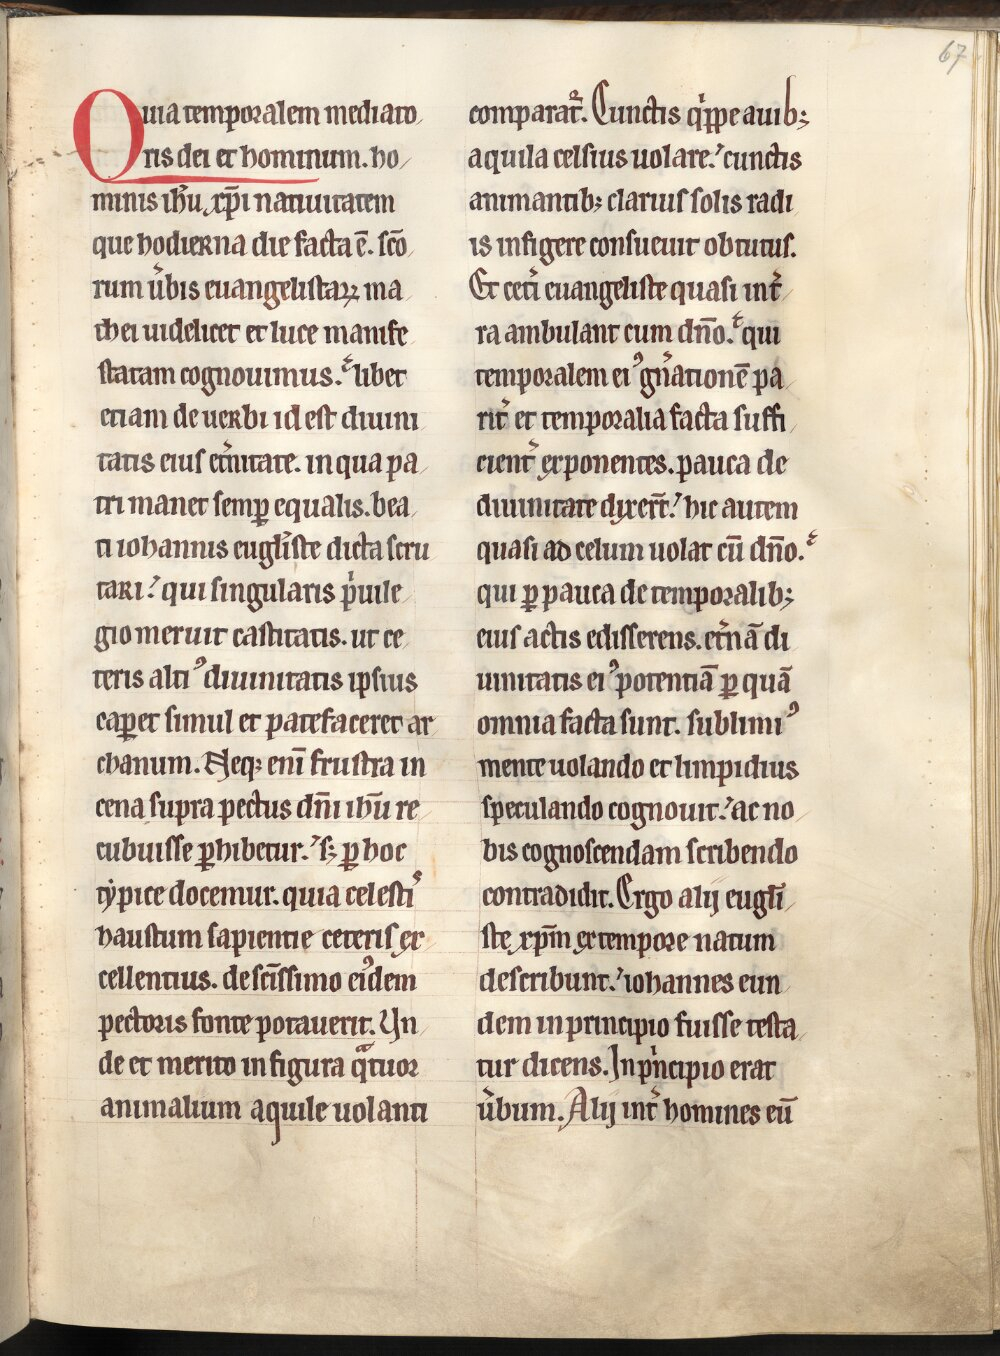 67
Quia temporalem mediato
ris dei et hominum. ho
minis ihũ xp̃i natiuitatem
que hodierna die facta ẽ. sc̃o
rum ũbis euangelistaꝝ ma
thei uidelicet et luce manife
statam cognouimus. libet
etiam de uerbi id est diuini
tatis eius et̾nitate. in qua pa
tri manet semꝑ equalis. bea
ti iohannis eugl̃iste dicta scru
tari. qui singularis p͛uile
gio meruit castitatis. ut ce
teris altiꝰ diuinitatis ipsius
caꝑet simul et patefaceret ar
chanum. Neqꝫ enĩ frustra in
cena supra pectus dñi ihũ re
cubuisse ꝑhibetur. sꝫ ꝑ hoc
typice docemur. quia celestiꝰ
haustum sapientie ceteris ex
cellentius. de sc̃issimo eiꝰdem
pectoris fonte potauerit. Vn
de et merito in figura qᵃtuor
animalium aquile uolanti
comparat᷑. Cunctis qͥppe auibꝫ
aquila celsius uolare. cunctis
animantibꝫ clarius solis radi
is infigere consueuit obtutus.
Et cet̾i euangeliste quasi int̾
ra ambulant cum dño. qui
temporalem eiꝰ gñationẽ pa
rit̾ et temporalia facta suffi
cient̾ exponentes. pauca de
diuinitate dixer̃t. hic autem
quasi ad celum uolat cũ dño.
qui ꝑ pauca de temporalibꝫ
eius actis edisserens. et̾nã di
uinitatis eiꝰ potentiã ꝑ quã
omnia facta sunt. sublimiꝰ
mente uolando et limpidius
speculando cognouit. ac no
bis cognoscendam scribendo
contradidit. Ergo alij eugl̃i
ste xp̃m ex tempore natum
describunt. iohannes eun
dem in principio fuisse testa
tur dicens. In pͥncipio erat
ũbum. Alij int̾ homines eũ